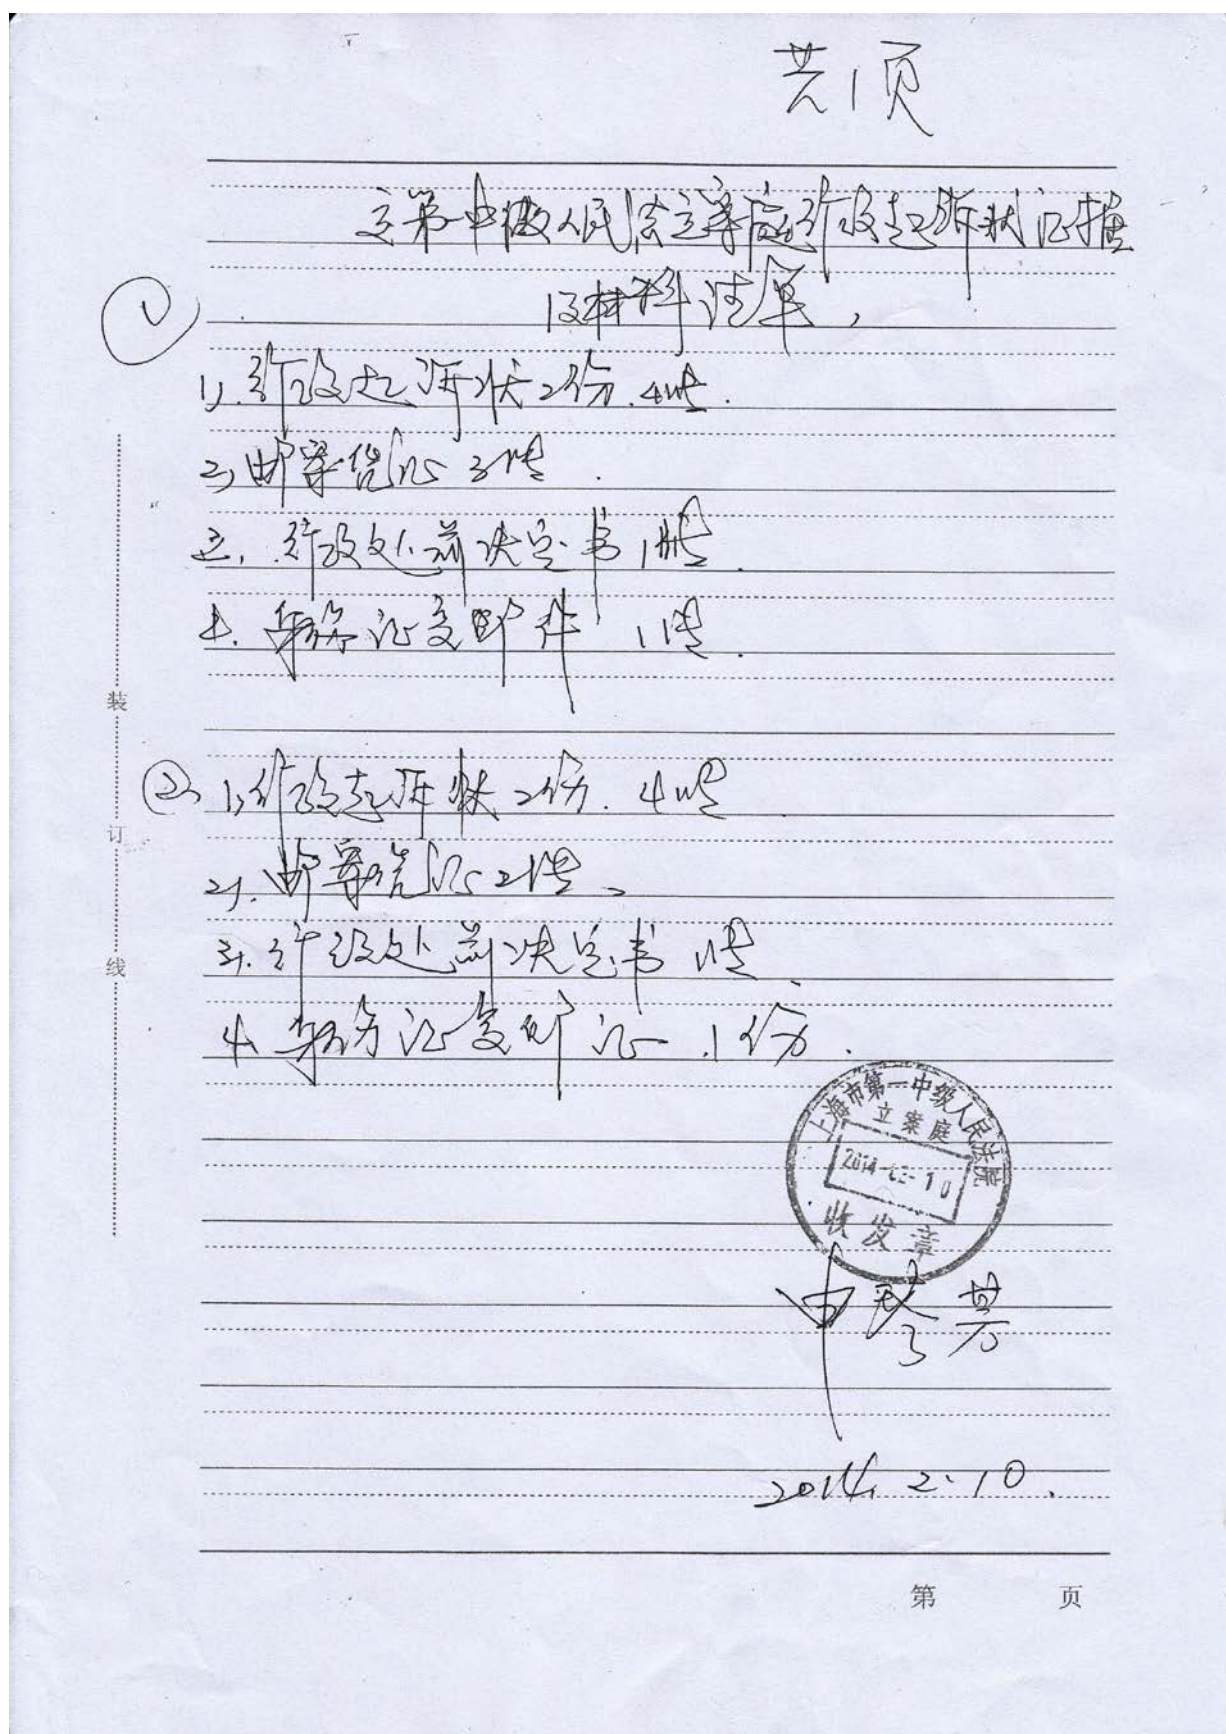 共1页
交第一中级人民法立案庭行政起诉状证据
及材料清单,
①
1). 行政起诉状2份.4张.
2) 邮寄凭证3张.
三. 行政处前决定书1张.
4. 身份证复印件 1张.
装
② 1). 行政起诉状2份. 4张
订
2). 邮寄凭证2张.
3). 行政处前决定书1张.
线
4. 身份证复印证.1份.
上海市第一中级人民法院
立案庭
2014-02-10
收发章
申琴芳
2014. 2. 10.
第 页